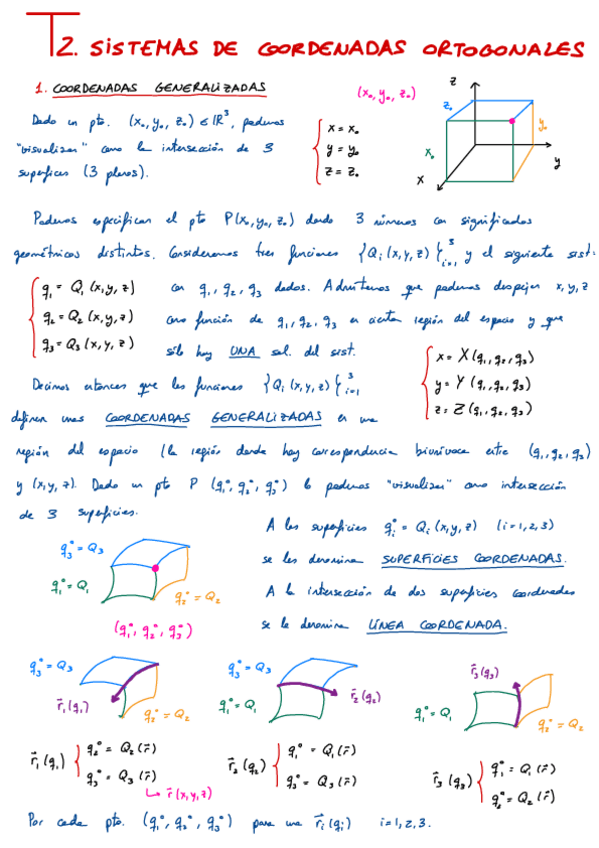 T2. SISTEMAS DE COORDENADAS ORTOGONALES
1. COORDENADAS GENERALIZADAS
(x₀, y₀, z₀)
z
z₀
y₀
x₀
x
y
Dado un pto. (x₀, y₀, z₀) ∈ ℝ³, podemos
"visualizar" como la intersección de 3
superficies (3 planos).
x = x₀
y = y₀
z = z₀
Podemos especificar el pto P(x₀, y₀, z₀) dando 3 números con significados
geométricos distintos. Consideremos tres funciones {Qᵢ(x, y, z)}³ᵢ₌₁ y el siguiente sist:
q₁ = Q₁(x, y, z)
q₂ = Q₂(x, y, z)
q₃ = Q₃(x, y, z)
con q₁, q₂, q₃ dados. Admitimos que podemos despejar x, y, z
como función de q₁, q₂, q₃ en cierta región del espacio y que
sólo hay UNA sol. del sist.
x = X(q₁, q₂, q₃)
y = Y(q₁, q₂, q₃)
z = Z(q₁, q₂, q₃)
Decimos entonces que las funciones {Qᵢ(x, y, z)}³ᵢ₌₁
definen unas COORDENADAS GENERALIZADAS en una
región del espacio (la región donde hay correspondencia biunívoca entre (q₁, q₂, q₃)
y (x, y, z). Dado un pto P (q₁°, q₂°, q₃°) lo podemos "visualizar" como intersección
de 3 superficies.
q₃° = Q₃
q₁° = Q₁
q₂° = Q₂
(q₁°, q₂°, q₃°)
A las superficies qᵢ° = Qᵢ(x, y, z) (i = 1, 2, 3)
se les denomina SUPERFICIES COORDENADAS.
A la intersección de dos superficies coordenadas
se le denomina LÍNEA COORDENADA.
q₃° = Q₃
r⃗₁(q₁)
q₂° = Q₂
q₃° = Q₃
q₁° = Q₁
r⃗₂(q₂)
r⃗₃(q₃)
q₁° = Q₁
q₂° = Q₂
r⃗₁(q₁) { q₂° = Q₂(r⃗)
q₃° = Q₃(r⃗)
↳ r⃗(x, y, z)
r⃗₂(q₂) { q₁° = Q₁(r⃗)
q₃° = Q₃(r⃗)
r⃗₃(q₃) { q₁° = Q₁(r⃗)
q₂° = Q₂(r⃗)
Por cada pto. (q₁°, q₂°, q₃°) pasa una r⃗ᵢ(qᵢ) i = 1, 2, 3.